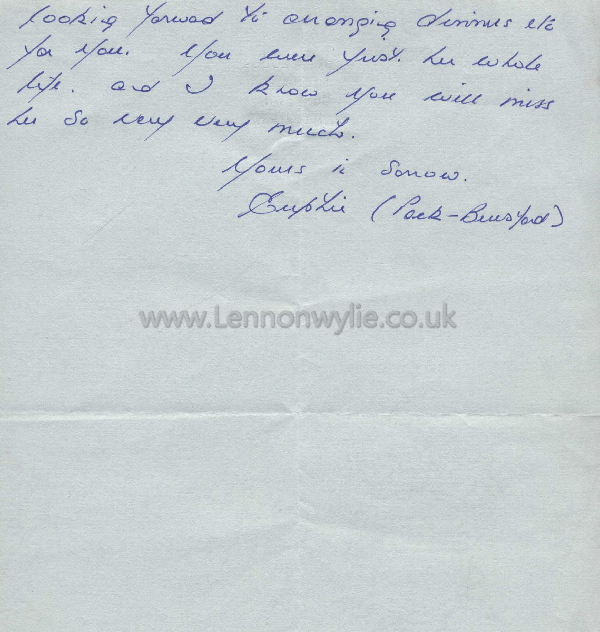 looking forward to arranging dinners etc
for you. You were just her whole
life. and I know you will miss
her so very very much.
Yours in sorrow.
Euphie (Pack-Beresford)
www.Lennonwylie.co.uk